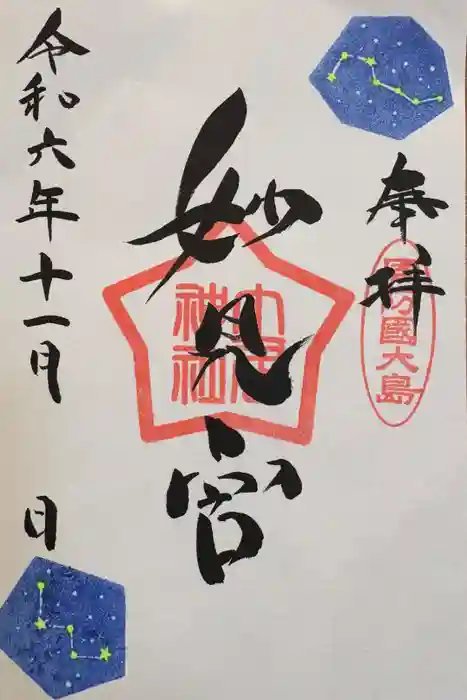 奉拝
妙見宮
令和六年十一月 日
國大島
神社